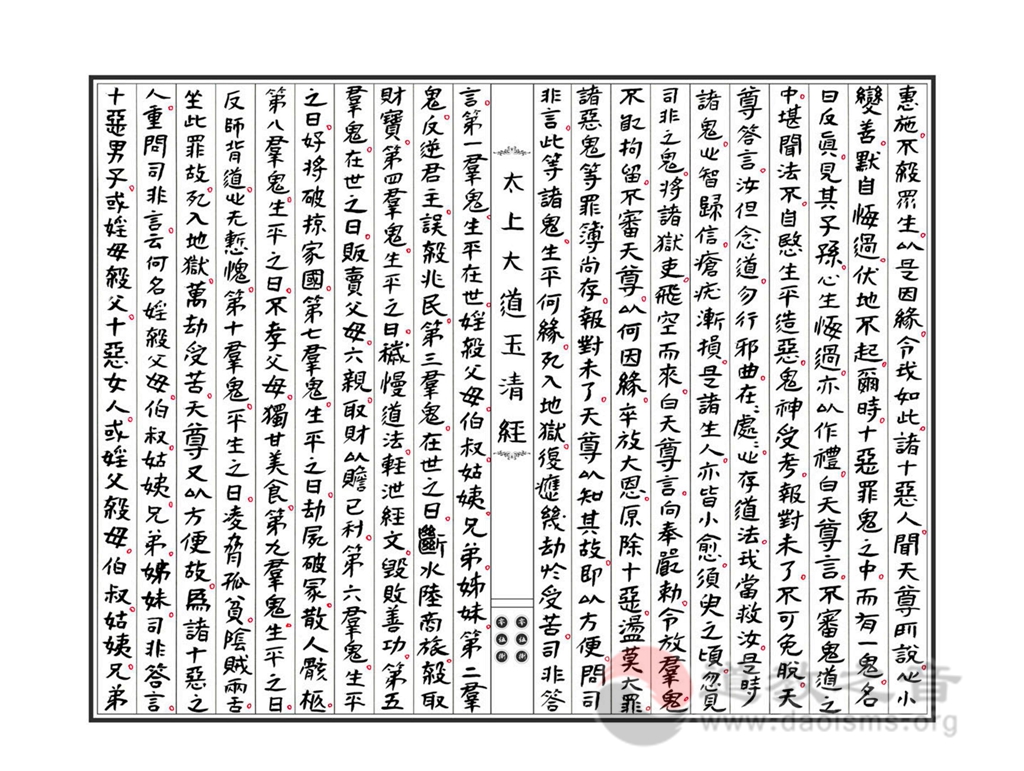 惠施不殺眾生以是因緣令我如此諸十惡人聞天尊所說心小
變善默自悔過伏地不起爾時十惡罪鬼之中而有一鬼名
曰反真見其子孫心生悔過亦以作禮白天尊言不審鬼道之
中堪聞法不自愍生平造惡鬼神受考報對未了不可免脫天
尊答言汝但念道勿行邪曲在在處處心存道法我當救汝是時
諸鬼心智歸信瘡疣漸損是諸生人亦皆小愈須臾之頃忽見
司非之鬼將諸獄吏飛空而來白天尊言向奉嚴勅令放羣鬼
不敢拘留不審天尊以何因緣卒放大恩原除十惡盪莫大罪
諸惡鬼等罪簿尚存報對未了天尊以知其故即以方便問司
非言此等諸鬼生平何緣死入地獄復歷幾劫於受苦司非答
太上大道玉清經
言第一羣鬼生平在世婬殺父母伯叔姑姨兄弟姊妹第二羣
鬼反逆君主誤殺兆民第三羣鬼在世之日斷水陸商旅殺取
財寶第四羣鬼生平之日穢慢道法輕泄經文毀敗善功第五
羣鬼在世之日販賣父母六親取財以贍己利第六羣鬼生平
之日好將破掠家國第七羣鬼生平之日劫屍破冢散人骸柩
第八羣鬼生平之日不孝父母獨甘美食第九羣鬼生平之日
反師背道心无慙愧第十羣鬼平生之日凌脅孤貧陰賊兩舌
坐此罪故死入地獄萬劫受苦天尊又以方便故爲諸十惡之
人重問司非言云何名婬殺父母伯叔姑姨兄弟姊妹司非答言
十惡男子或婬母殺父十惡女人或婬父殺母伯叔姑姨兄弟
道教之音
www.daoisms.org